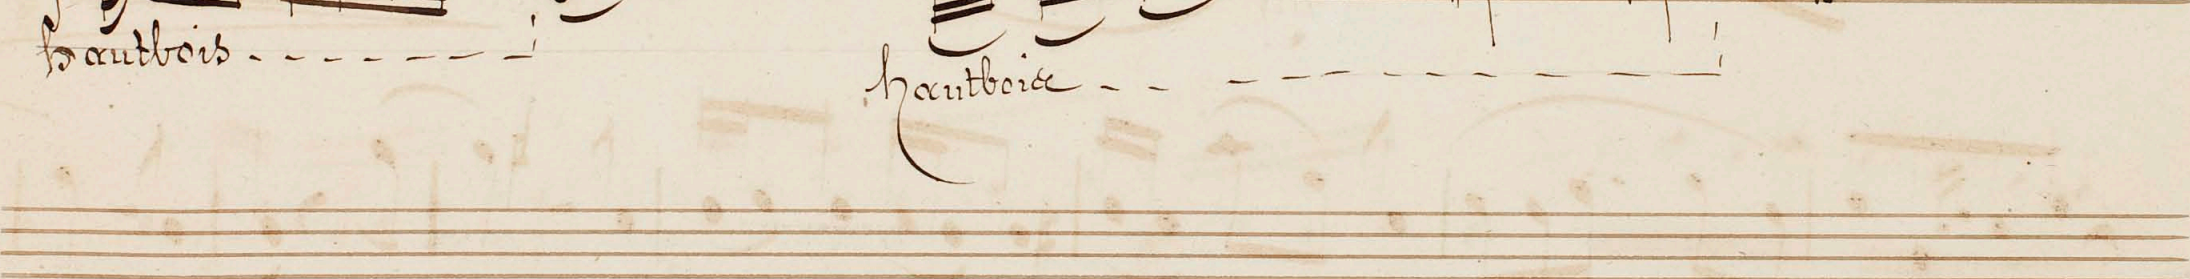 hautbois
hautbois